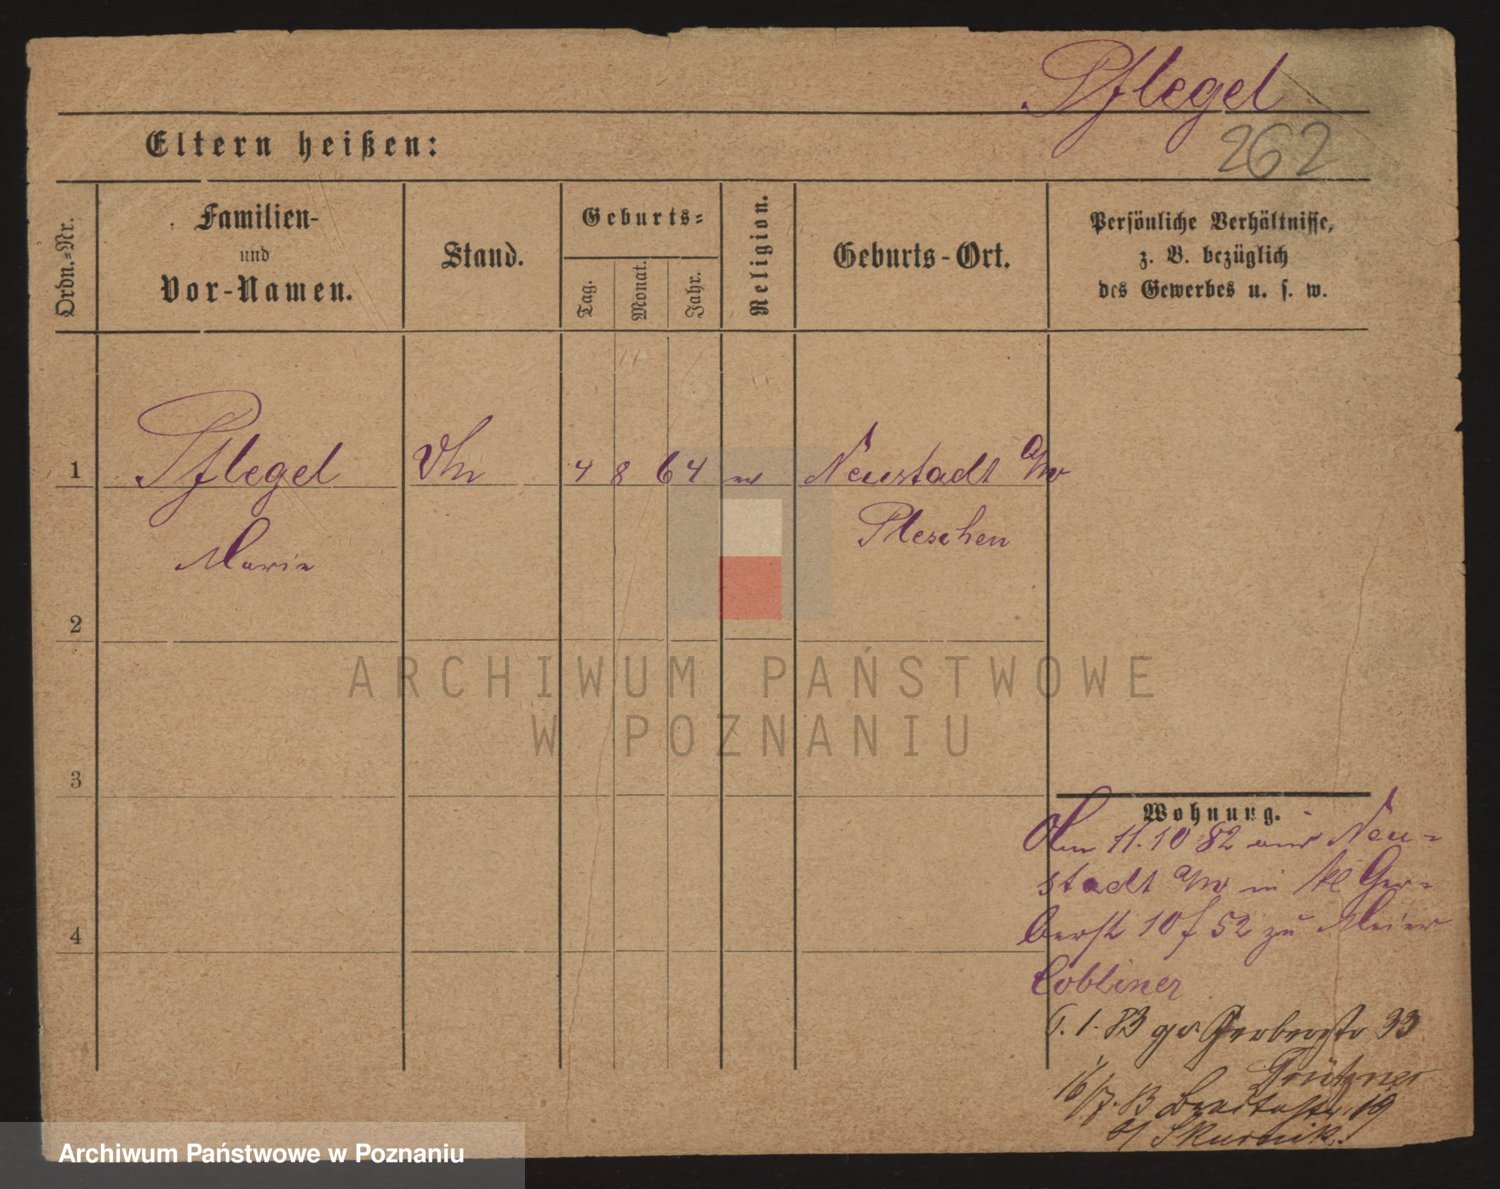 Pflegel
262
Eltern heißen:
Ordn.-Nr.
Familien-
und
Vor-Namen.
Stand.
Geburts-
Tag.
Monat.
Jahr.
Religion.
Geburts-Ort.
Persönliche Verhältnisse,
z. B. bezüglich
des Gewerbes u. s. w.
1 Pflegel 4 8 64 Neustadt a/W
Pleschen
Marie
2
3
4
ARCHIWUM PAŃSTWOWE
W POZNANIU
Wohnung.
11.10 82 aus Neu-
stadt a/W in kl Ger-
berstr 10 f 52 zu Meier
Cobliner
1. 83 gr. Gerberstr 33
16/7. 83 Breitestr. 19
Archiwum Państwowe w Poznaniu